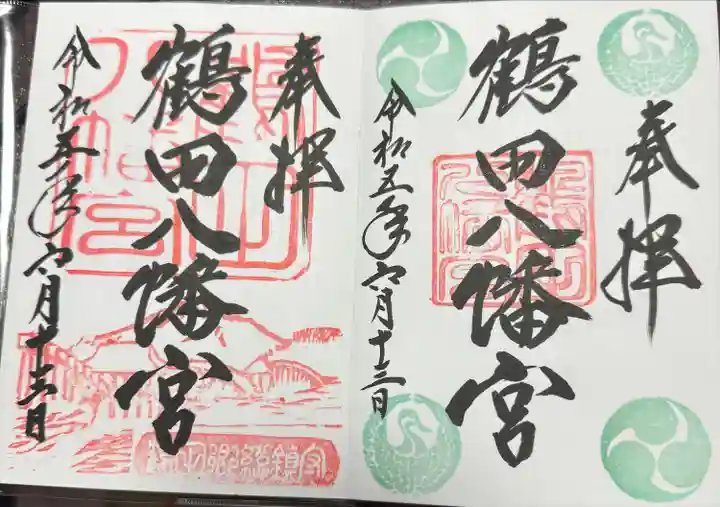 奉拝
鶴田八幡宮
令和五年六月十三日
奉拝
鶴田八幡宮
令和五年六月十三日